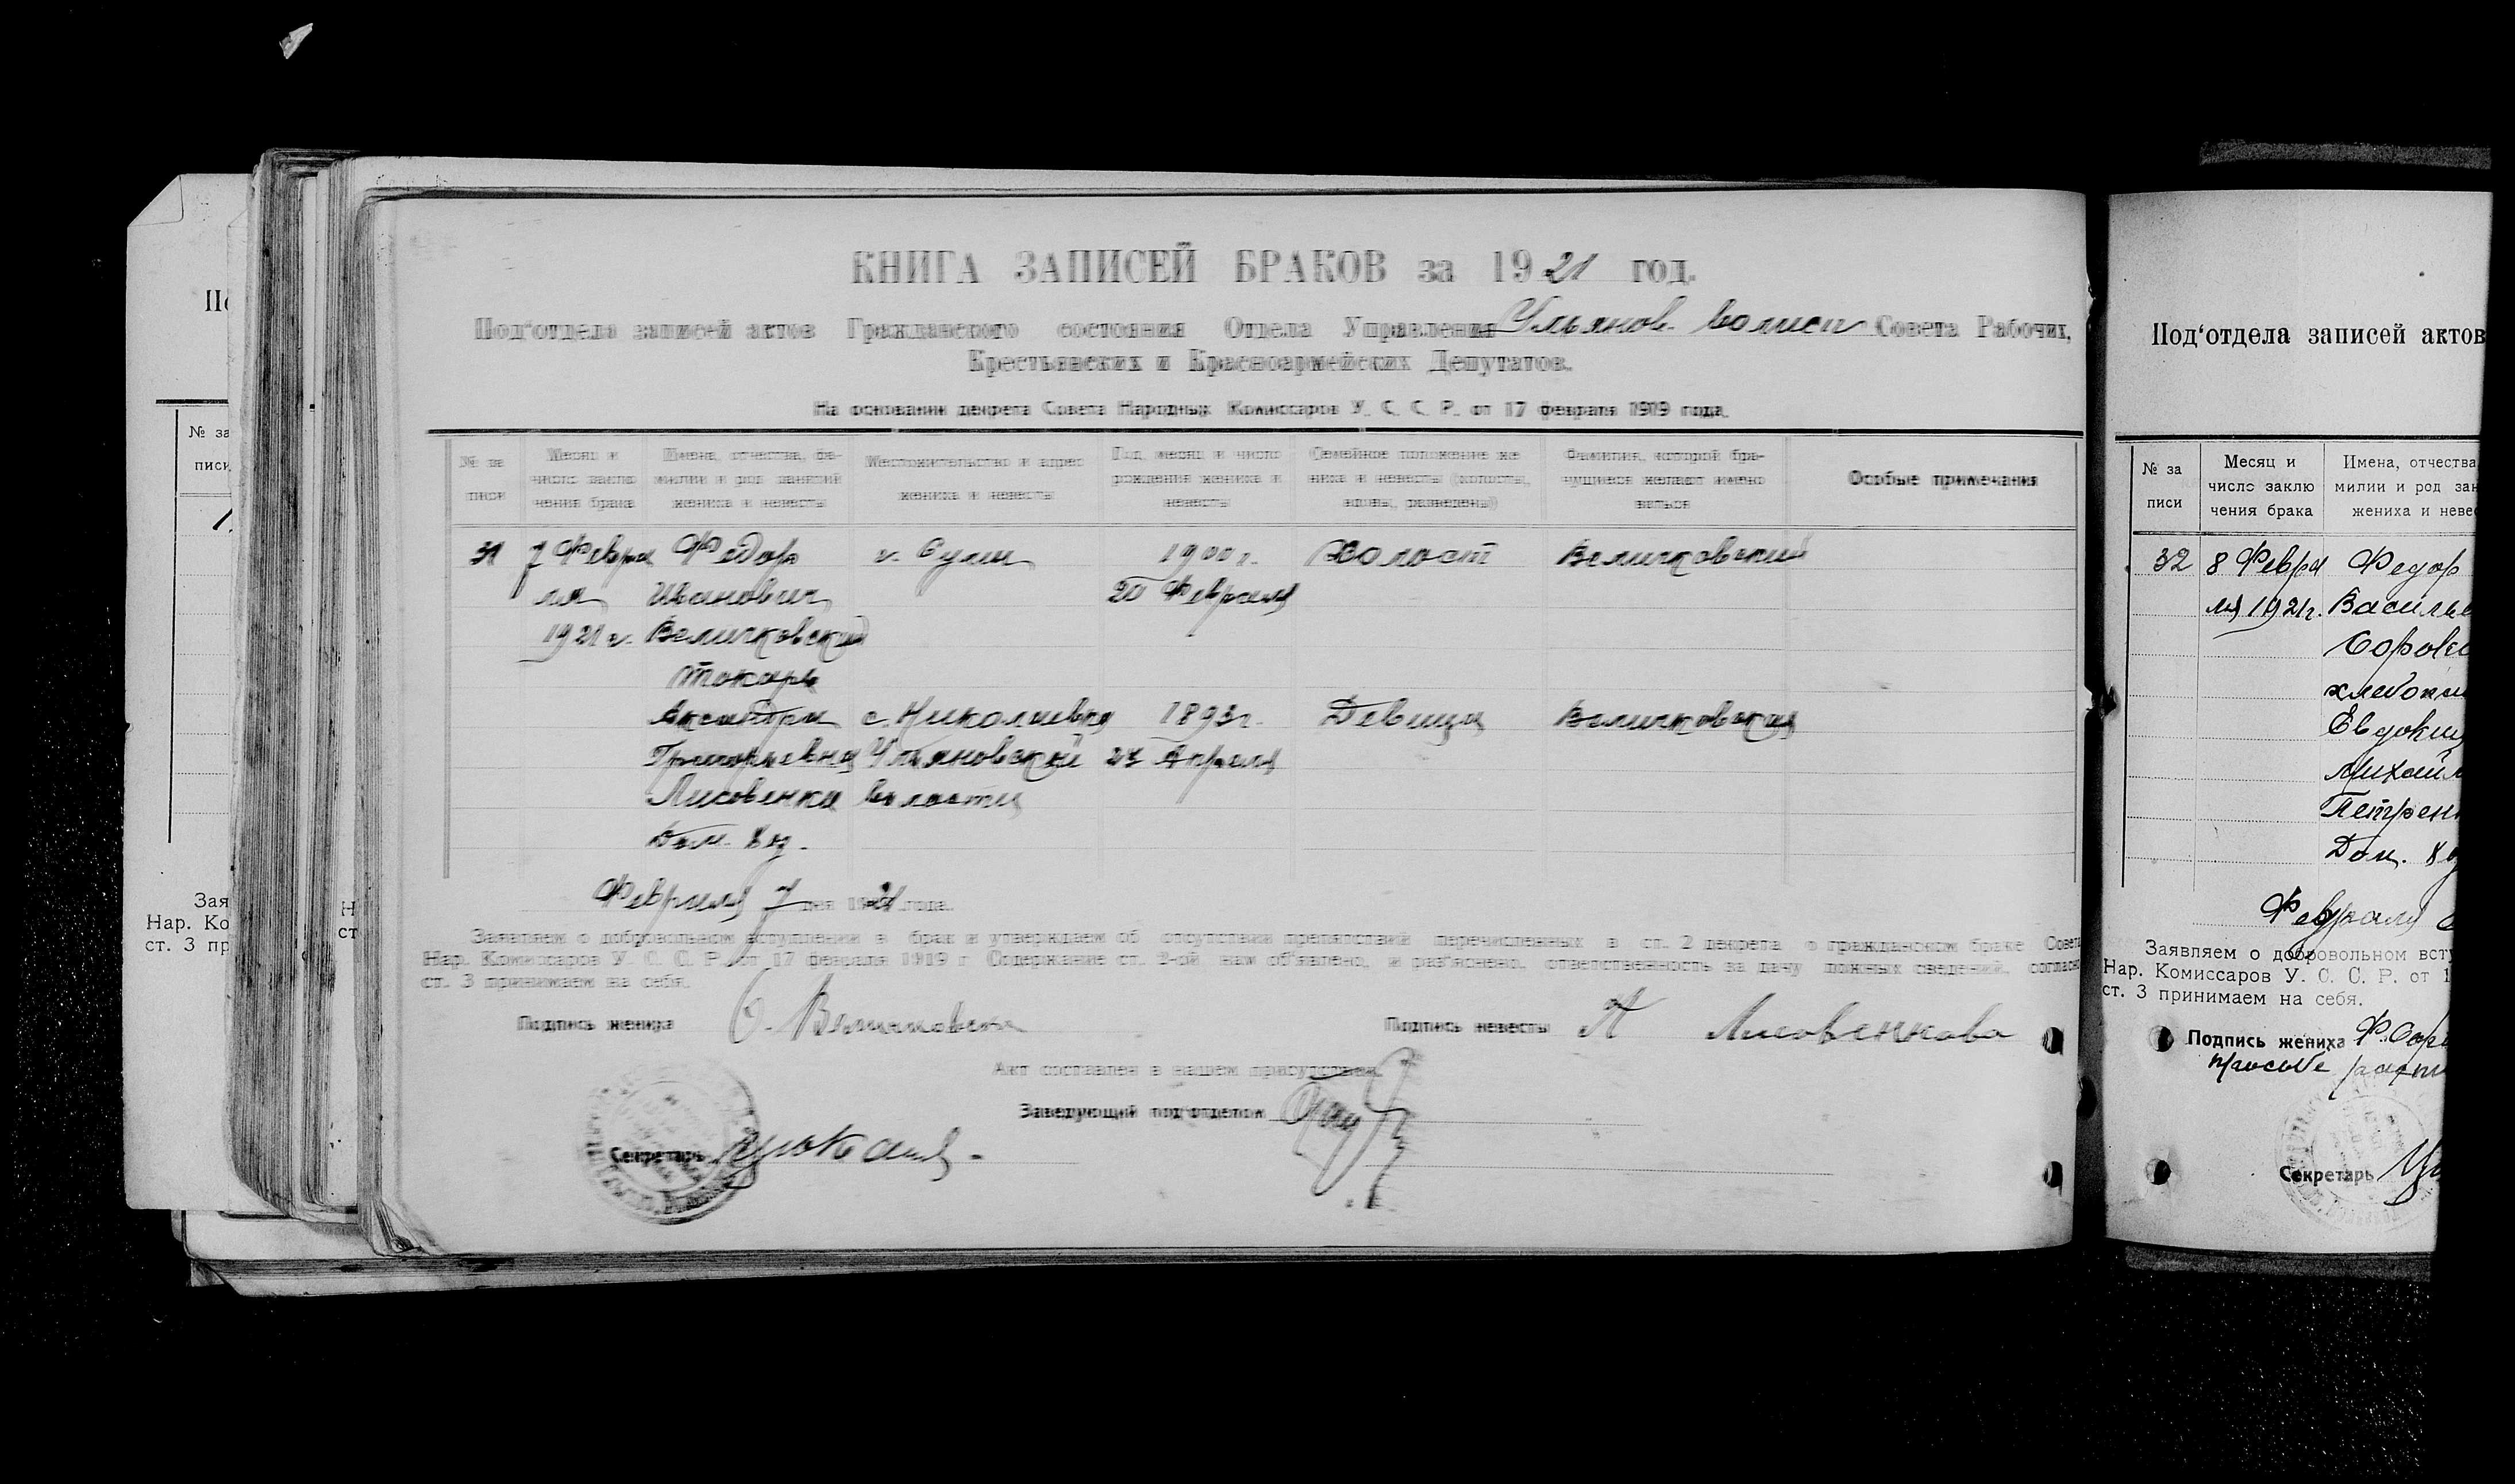 КНИГА ЗАПИСЕЙ БРАКОВ за 1921 год.
Под‘отдела записей актов Гражданского состояния Отдела Управления Ульянов. волисп Совета Рабочих,
Крестьянских и Красноармейских Депутатов.
На основании декрета Совета Народных Комиссаров У. С. С. Р. от 17 февраля 1919 года.
№ за
писи
Месяц и
число заклю
чения брака
Имена, отчества, фа-
милии и род занятий
жениха и невесты
Местожительство и адрес
жениха и невесты
Год, месяц и число
рождения жениха и
невесты
Семейное положение же
ниха и невесты (холосты,
вдовы, разведены)
Фамилия, которой бра-
чущиеся желают имено
ваться
Особые примечания
31 7 Февра Федор г. Сумы 1900 г. Холост Величковский
ля Иванович 20 Февраля
1921 г. Величковский
Токарь
Александра с. Николаевка 1893 г. Девица Величковская
Григорьевна Ульяновской 23 Апреля
Лисовенко волости
Дом. хоз.
Февраля 7 дня 1921 года.
Заявляем о добровольном вступлении в брак и утверждаем об отсутствии препятствий перечисленных в ст. 2 декрета о гражданском браке Совета
Нар. Комиссаров У. С. С. Р. от 17 февраля 1919 г Содержание ст. 2-ой нам об‘явлено, и раз‘яснено, ответственность за дачу ложных сведений, согласно
ст. 3 принимаем на себя.
Подпись жениха
Подпись невесты А Лисовенкова
Акт составлен в нашем присутствии.
Заведующий под‘отделом
Секретарь
Под‘отдела записей актов
№ за
писи
Месяц и
число заклю
чения брака
Имена, отчества
милии и род зан
жениха и невес
32 8 Февра Федор
ля 1921 г. Василье
Евдоки
Михайл
Петрен
Дом. хо
Февраля
Заявляем о добровольном всту
Нар. Комиссаров У. С. С. Р. от 1
ст. 3 принимаем на себя.
Подпись жениха
Секретарь
№ за
писи
Зая
Нар. Ко
ст. 3 пр